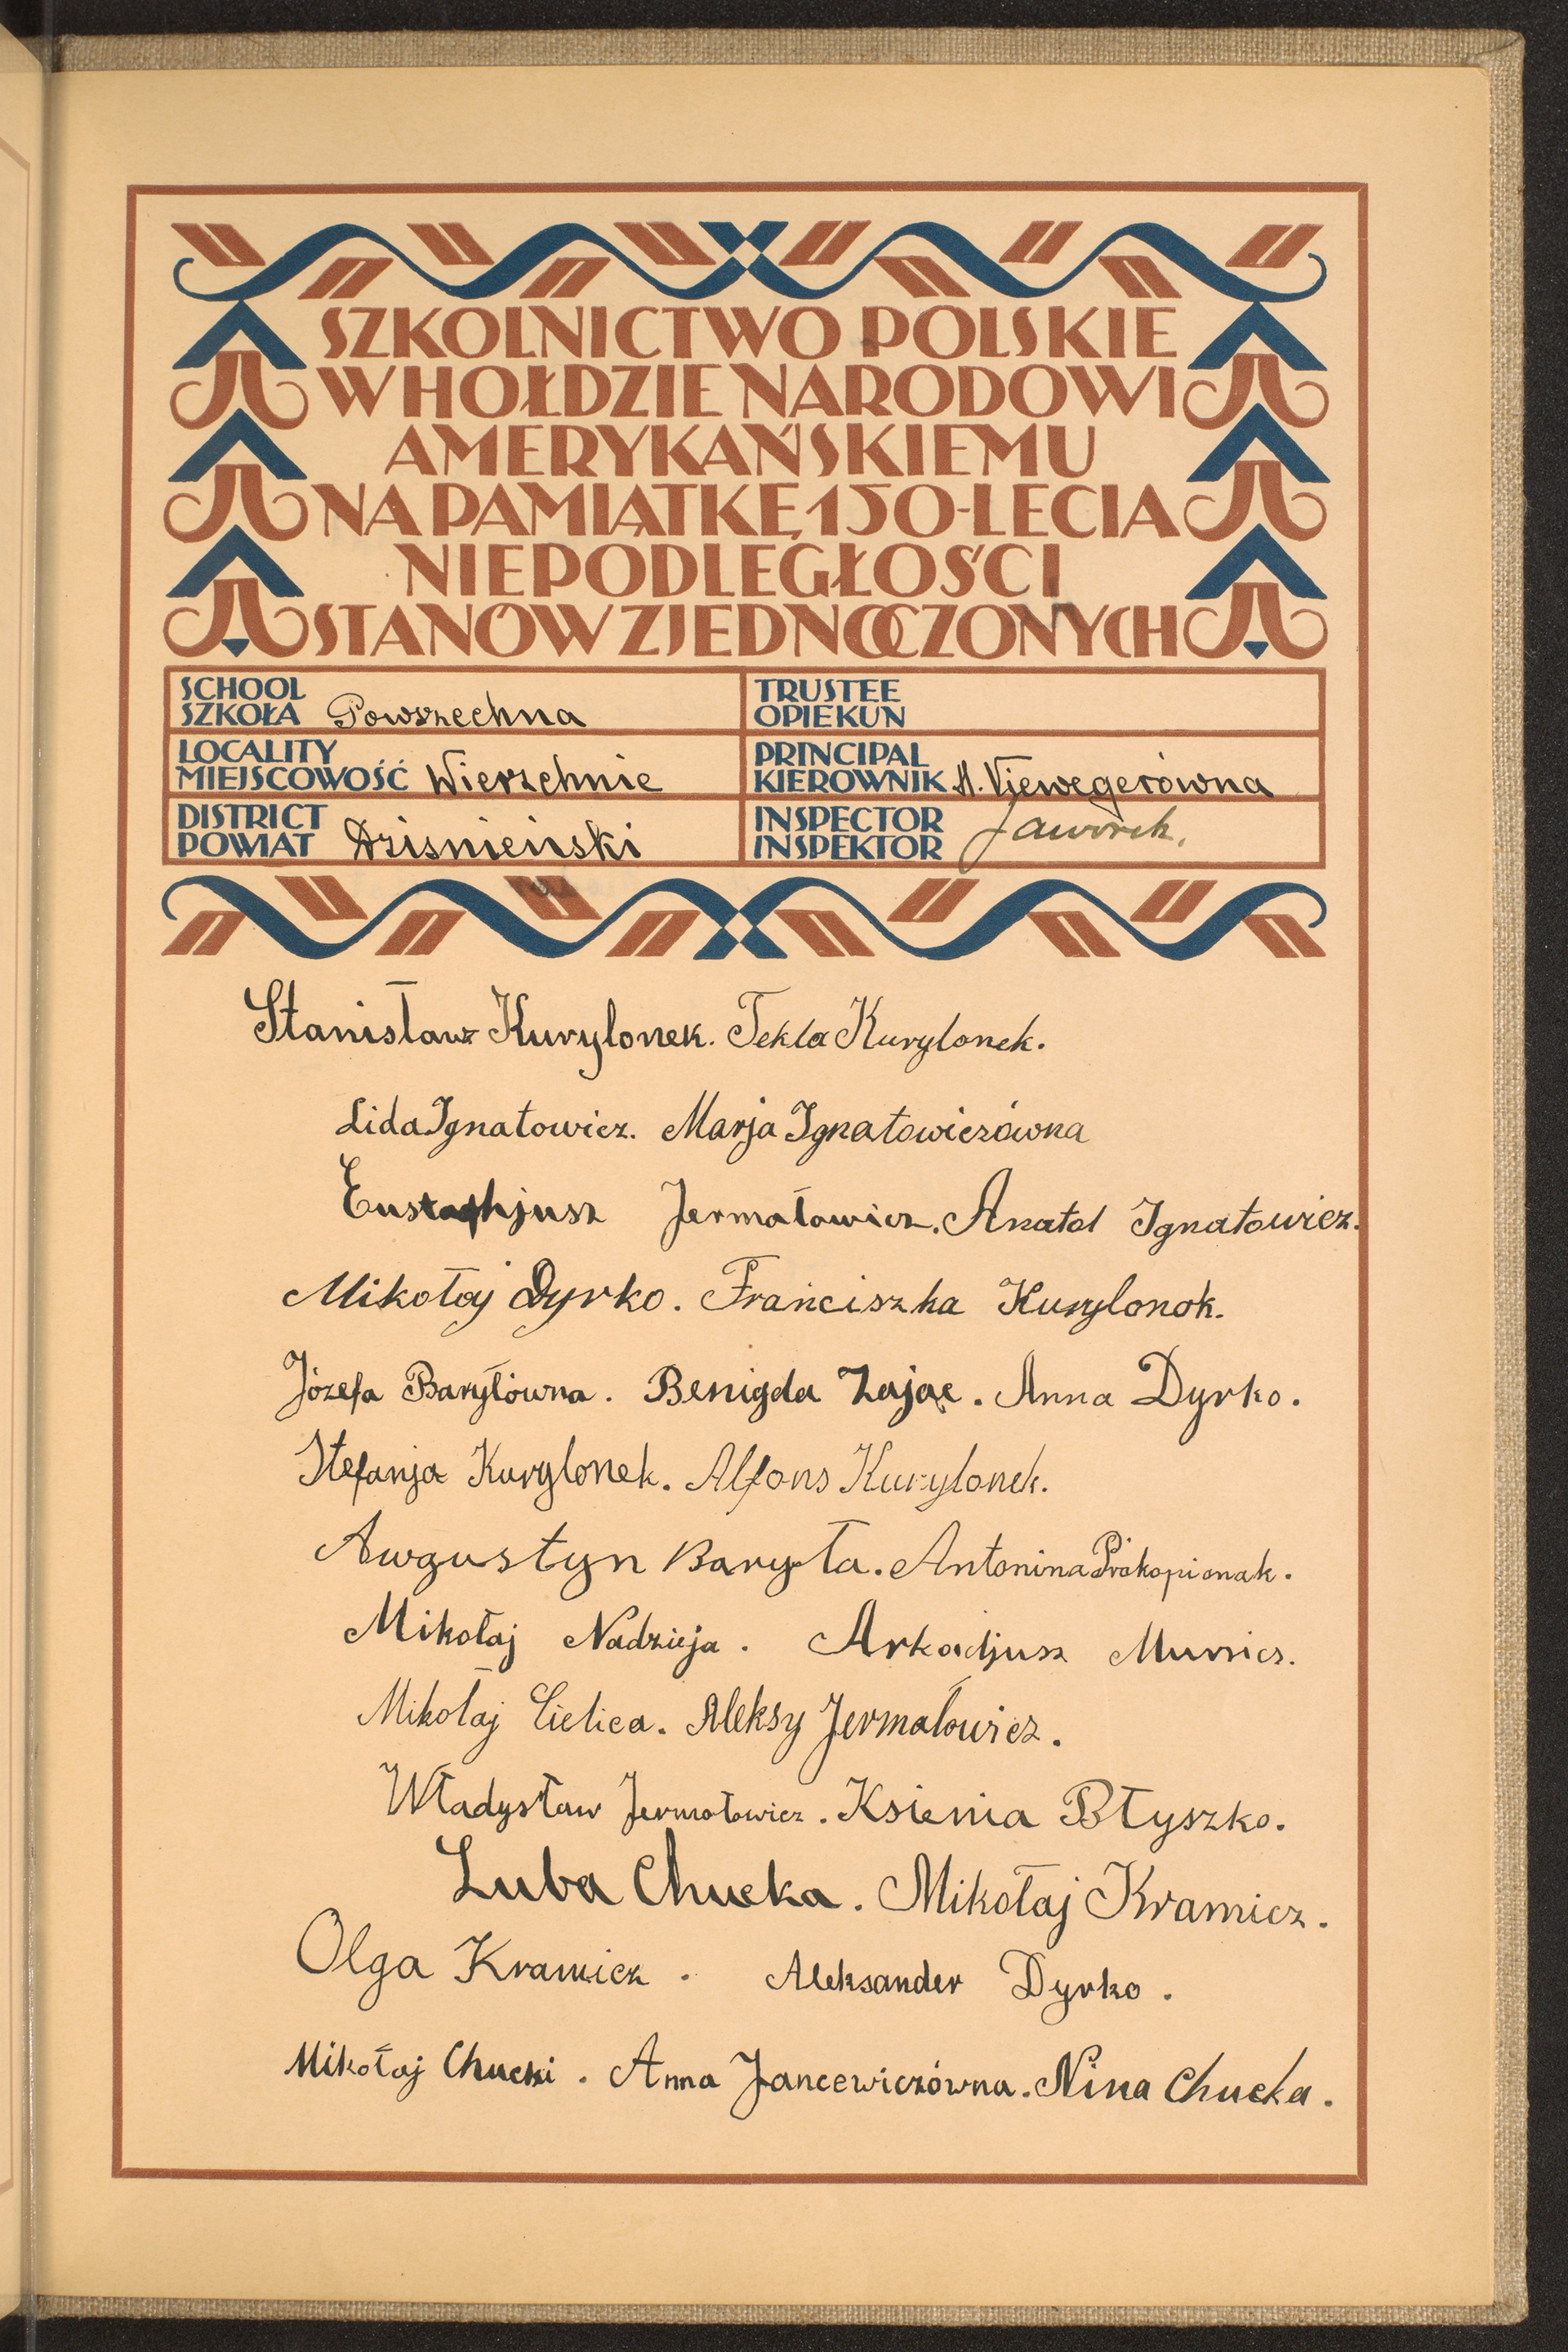 SZKOLNICTWO POLSKIE
W HOŁDZIE NARODOWI
AMERYKAŃSKIEMU
NA PAMIĄTKĘ 150-LECIA
NIEPODLEGŁOŚCI
STANÓW ZJEDNOCZONYCH
SCHOOL
SZKOŁA Powszechna
TRUSTEE
OPIEKUN
LOCALITY
MIEJSCOWOŚĆ Wierzchnie
PRINCIPAL
KIEROWNIK A. Viewegerówna
DISTRICT
POWIAT Dziśnieński
INSPECTOR
INSPEKTOR Jaworek.
Stanisław Kurylonek. Tekla Kurylonek.
Lida Ignatowicz. Marja Ignatowiczówna
Eustachjusz Jermałowicz. Anatol Ignatowicz.
Mikołaj Dyrko. Franciszka Kurylonok.
Józefa Baryłówna. Benigda Zając. Anna Dyrko.
Stefanja Kurylonek. Alfons Kurylonek.
Awgustyn Baryła. Antonina Prokopionak.
Mikołaj Nadzieja. Arkadjusz
Mikołaj Cielica. Aleksy Jermałowicz.
Władysław Jermołowicz. Ksienia Błyszko.
Luba Chucka. Mikołaj Kramicz.
Olga Kramicz. Aleksander Dyrko.
Mikołaj Chucki. Anna Jancewiczówna. Nina Chucka.